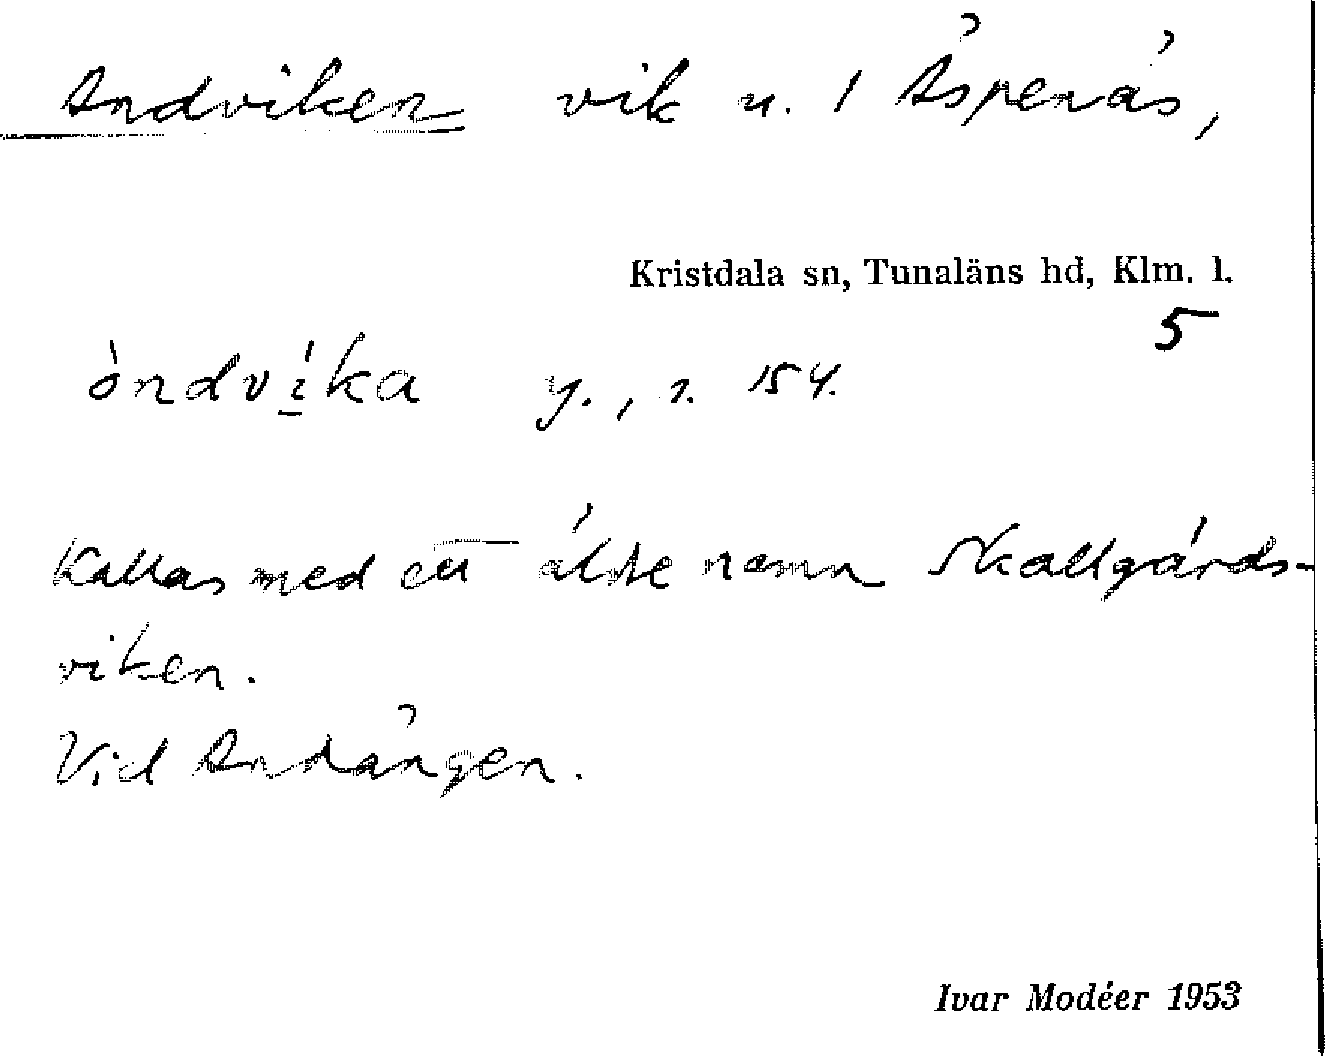 Andviken vik u. / Åspenäs,
Kristdala sn, Tunaläns hd, Klm. l.
5
òndvíka y., s. 154.
Kallas med ett äldre namn Skallgårds-
viken.
Vid Andängen.
Ivar Modéer 1953